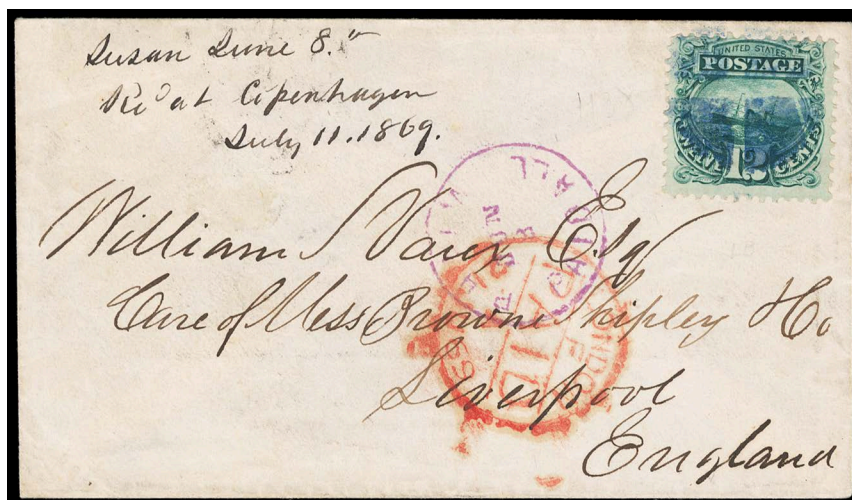 Susan June 8.th
Rec'd at Copenhagen
July 11. 1869.
UNITED STATES
POSTAGE
12 CENTS
William S Vaux Esq
Care of Mess Browne Shipley & Co
Liverpool
England
PAID